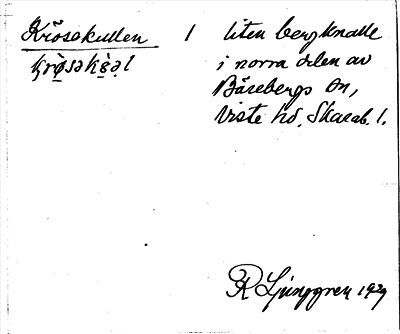 Krösekullen 1 liten bergknalle
i norra delen av
Bärebergs sn,
Viste hd, Skarab. l.
R Ljunggren 1929